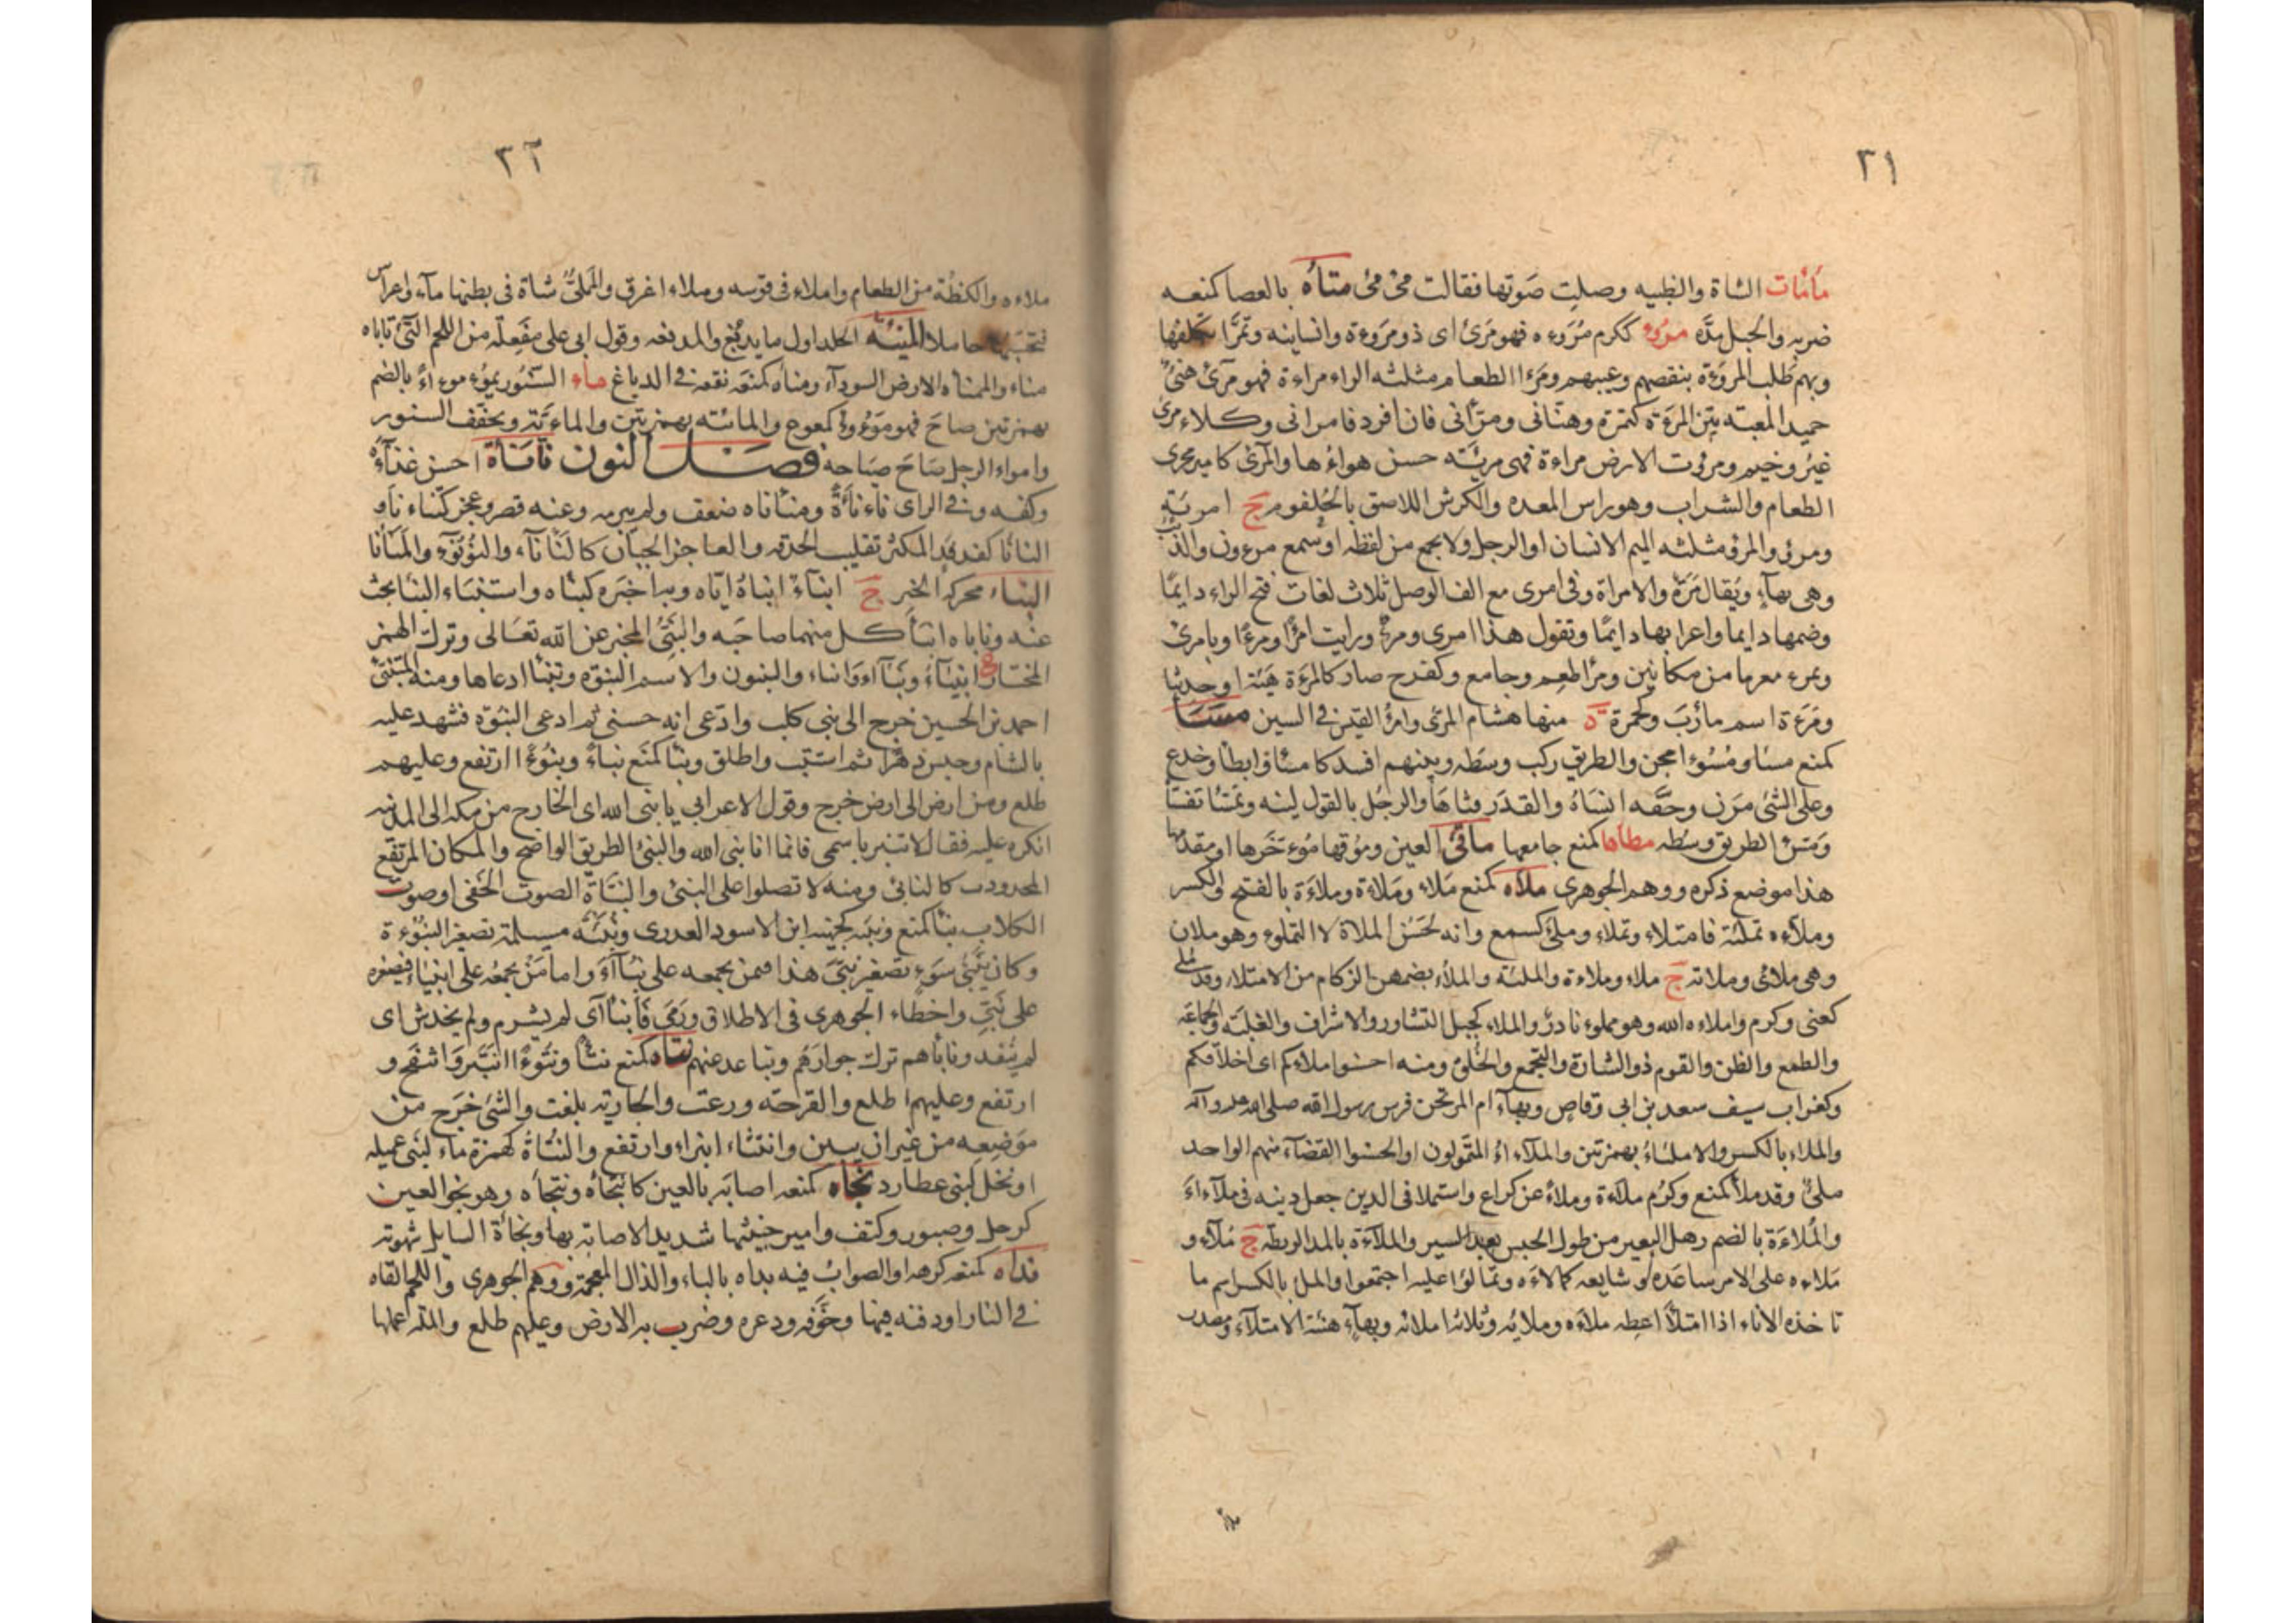 ٢١
مأمأت الشاة والظبيه وصلت صوتها فقالت مئ مئ متأه بالعصا كمنعه
ضربه والحبل مدّه مرؤ ككرم مروءه فهو مرئ اى ذو مروءة وانسانيه وتمرّا تكلفها
وبهم طلب المروءة بنقصهم وعيبهم ومرءا الطعام مثلثه الراء مراءة فهو مرئ هنئ
حميد المغبه بيّن المرءة كتمرة وهنأنى ومرأنى فان افرد فامرانى وكلاء مرئ
غير وخيم ومرؤت الارض مراءة فهى مريئه حسن هواءها والمرئ كامير مجرى
الطعام والشراب وهو راس المعده والكرش اللاصق بالحلقوم ج امرئة
ومرؤ والمرؤ مثلثه الميم الانسان او الرجل ولا يجمع من لفظه او سمع مرءون والذئب
وهى بهآء ويقال مرة والامراة وفى امرى مع الف الوصل ثلاث لغات فتح الراء دايمًا
وضمها دايما واعرابها دايمًا وتقول هذا امرى ومرء ورايت امرًا ومرءًا وبامرئ
وبمرء معربا من مكانين ومرأ طعم وجامع وكفرح صار كالمرءة هيئة او حديثا
ومرءة اسم مأرب وكحمزة ة منها هشام المرئى وامرؤ القيس فى السين مسأ
كمنع مسا ومسوءا مجن والطريق ركب وسطه وبينهم افسد كامسا وابطأ وخدع
وعلى الشئ مرن وحقه انساه والقدر فثاها والرجل بالقول لينه وتمسا تفسأ
ومسء الطريق وسطه مطأها كمنع جامعها ماقئ العين وموقها موءخرها او مقدمها
هذا موضع ذكره ووهم الجوهرى ملأه كمنع ملاء وملاءة وملاءة بالفتح والكسر
وملآءه تملئة فامتلاء وتملاء وملئ كسمع وانه لحسن الملاة لا التملوء وهو ملان
وهى ملائ وملانه ج ملاء وملاءة والملئه والملاء بضمهن الزكام من الامتلاء وقد ملئ
كعنى وكرم واملاءه الله وهو مملوء نادر والملاء كجبل التشاور والاشراف والعلية والجماعة
والطمع والظن والقوم ذو الشارة والتجمع والخلق ومنه احسنوا ملاءكم اى اخلاقكم
وكغراب سيف سعد بن ابى وقاص وبهآء ام المرتجز فرس رسول الله صلى الله عليه وآله
والملاء بالكسر والاملئاء بهمزتين والملآء الاغنياء المتمولون او الحسنوا القضآء منهم الواحد
ملئ وقد ملأ كمنع وكرم ملآءة وملاء عن كراع واستملا فى الدين جعل دينه فى ملآءآء
والملاءة بالضم رهل البعير من طول الحبس بعد السير والملآءة بالمد الريطة ج ملآء و
ملاءه على الامر ساعده وشايعه كمالاءه وتمالؤا عليه اجتمعوا والملئ بالكسر اسم ما
تاخذه الاناء اذا امتلأ اعطه ملاءه وملايه وثلاثه املائه وبهآء هيئة الامتلآء ومصدر
ملاءه
٢٢
ملاءه والكظة من الطعام واملاء فى قوسه وملاء اغرق والمملئ شاة فى بطنها مآء واغراس
فتحسبها حاملا المنيئة الجلد اول ما يدبغ والمدبغه وقول ابى على مفعلة من اللحم النّئ ياباه
مناء والممناه الارض السودآء ومناه كمنعه نقعه فى الدباغ ماء السنور يموء موءاءً بالضم
بهمزتين صاح فهو موءوء كمعوع والمائئه بهمزتين والمائية ويخفف السنور
وامواء الرجل صاح صياحه فصل النون نأنأه احسن غذآءه
وكفه وفى الراى ناءناءة ومناناه ضعف ولم يبرمه وعنه قصر وعجز كتناءناء و
النانا كفدفد المكثر تقليب الحدقه والعاجز الجبان كالنّأناء والنؤنوء والمنأنا
النباء محركة الخبر ج انبآء انباءه اياه وبه اخبره كنباه واستنباء النبا بحث
عنه وناباه انبا كل منهما صاحبه والنبئ المخبر عن الله تعالى وترك الهمز
المختار ج انبياء ونبآء وانباء والنبيون والاسم النبوّه وتنبا ادعاها ومنه المتنبئ
احمد بن الحسين خرج الى بنى كلب وادعى انه حسنى ثم ادعى النبوة فشهد عليه
بالشام وحبس دهرا ثم استتيب واطلق ونبأ كمنع نباءً ونبوءًا ارتفع وعليهم
طلع ومن ارض الى ارض خرج وقول الاعرابي يا نبئ الله اى الخارج من مكه الى المدينه
انكره عليه فقال لا تنبر باسمى فانما انا نبى الله والنبئ الطريق الواضح والمكان المرتفع
المحدودب كالنابئ ومنه لا تصلوا على النبئ والنبأة الصوت الخفى او صوت
الكلاب نبا كمنع ونبيه كجهينة ابن الاسود العدرى ونبيئة مسيلمة تصغير النبوءة
وكان نبئ سوء تصغير نبئ هذا فمن يجمعه على نبآء واما من يجمعه على انبياء فيصغره
على نبى واخطاء الجوهرى فى الاطلاق ورمى فانبا اى لم يشرم ولم يخدش اى
لم ينفد ونابأهم ترك جوارهم وتباعد عنهم نتأ كمنع نتأ ونتوءا انتبر وانتفخ و
ارتفع وعليهم اطلع والقرحه ورمت والجارية بلغت والشئ خرج من
موضعه من غير ان يبين وانتتاء انبراء وارتفع والنتاة كهمزة ماء لبنى عميلة
او نخل لبنى عطارد نجأه كمنعه اصابه بالعين كانتجأه وتنجأه وهو نجؤ العين
كرجل وصبور وكتف وامير خبيثها شديد الاصابة بها ونجأة السايل شهوته
ندأه كمنعه كرهه او الصواب فيه بداه بالباء والذال المعجمة ووهم الجوهرى واللحم القاه
فى النار او دفنه فيها وخوّفه ودعره وضرب به الارض وعليهم طلع والملة عملها